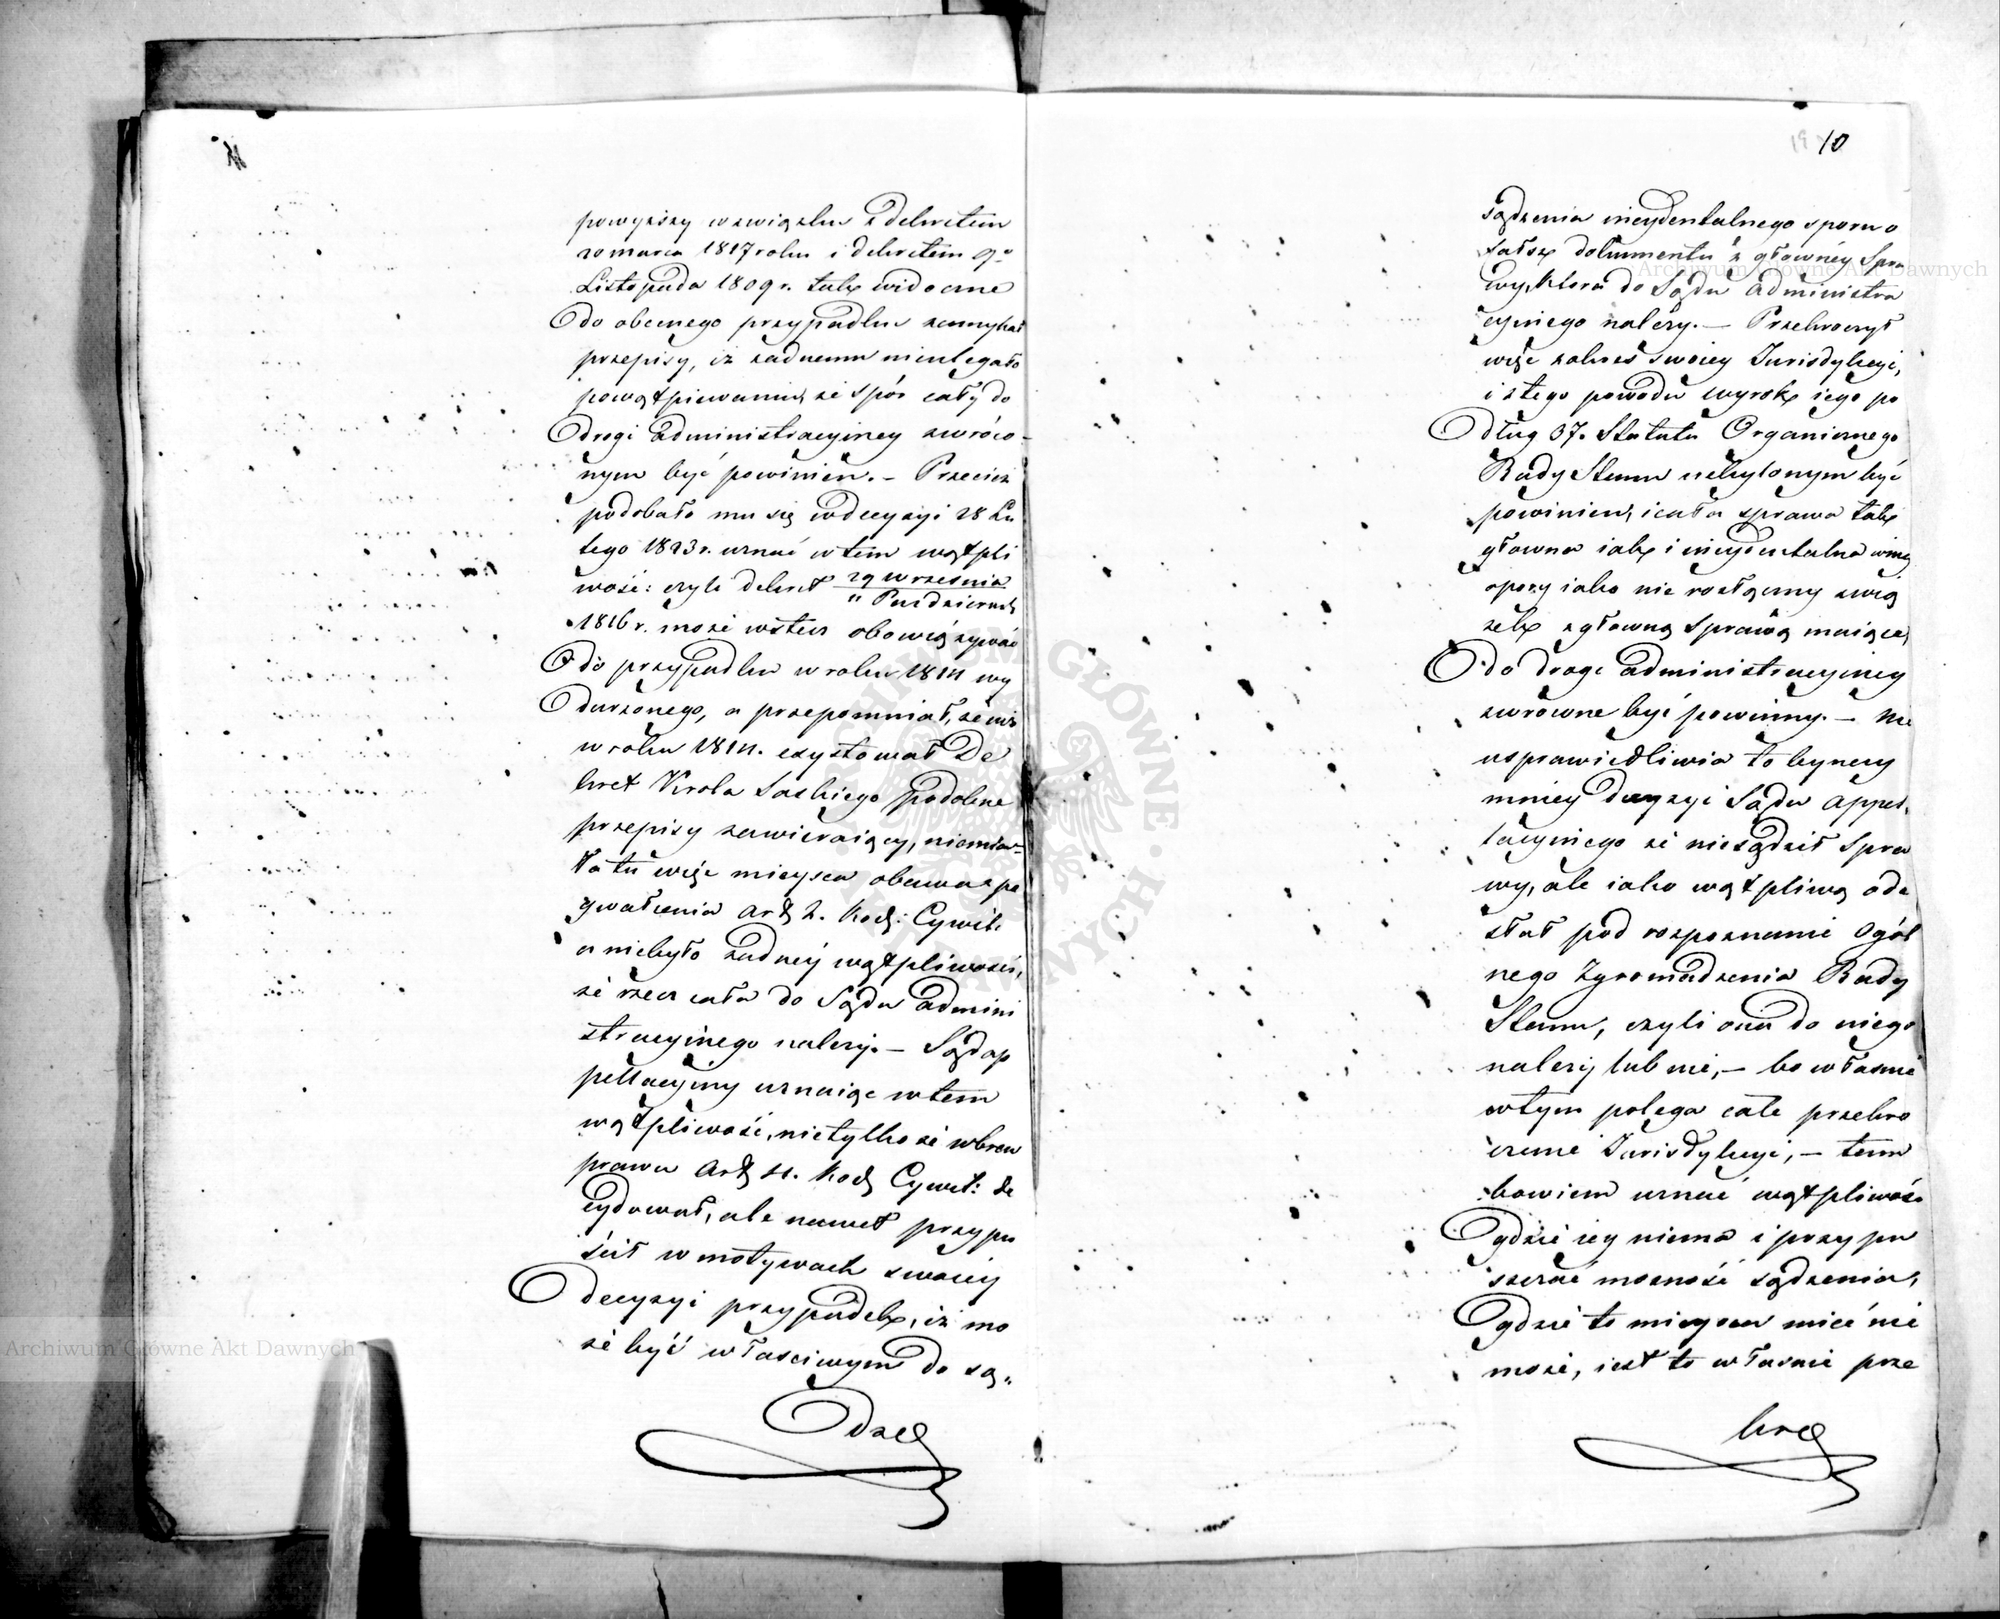 powyższy w związku z dekretem
20 marca 1817 roku i dekretem 9go
Listopada 1809 r. tak widoczne
do obecnego przypadku zamykał
przepisy, iż żadnemu nieulegało
powątpiewaniu, że spór cały do
drogi administracyiney zwróco-
nym być powinien. – Przecież
podobało mu się w decyzyi 28 Lu
tego 1823 r. uznać w tem wątpli
wość: czyli dekret 29 Września
" Pazdziernika
1816 r. może wstecz obowiązywać
do przypadku w roku 1814 wy
darzonego, a przepomniał, że iuż
w roku 1814. exystował De
kret Króla Saskiego podobne
przepisy zawieraiący, niemia-
ła tu więc mieysca obawa po
gwałcenia Art. 2. Kod: Cywil:
a niebyło żadney wątpliwości,
że rzecz cała do Sądu admini
stracyinego należy. – Sąd ap
pellacyiny uznaiąc w tem
wątpliwość, nietylko że wbrew
prawu Art. 4. Kod. Cywil: de
cydował, ale nawet przypu
ścił w motywach swoiey
decyzyi przypadek, iż mo
że być właściwym do są„
dze
10
sądzenia incydentalnego sporu o
fałsz dokumentu z główney Spra
wy, która do Sądu Administra
cyinego należy. – Przekroczył
więc zakres swoiey Jurisdykcyi,
i z tego powodu wyrok iego po
dług 37. Statutu Organicznego
Rady Stanu uchylonym być
powinien, i cała sprawa tak
główna iak i incydentalna winny
spory iako nie rozłączny zwią
zek z główną Sprawą maiące,
do drogi administracyiney
zwrócone być powinny. – Nie
usprawiedliwia to bynay
mniey decyzyi Sądu Appel„
lacyinego że niesądził Spra
wy, ale iako wątpliwą ode
słał pod rozpoznanie Ogól
nego Zgromadzenia Rady
Stanu, czyli ona do niego
należy lub nie, – bo właśnie
w tym polega całe przekro
czenie Jurisdykcyi, – tem
bowiem uznać wątpliwość
gdzie iey niema i przypu
szczać możność sądzenia,
gdzie to mieysca mieć nie
może, iest to właśnie prze
kro
Archiwum Główne Akt Dawnych
Archiwum Główne Akt Dawnych
ARCHIWUM GŁÓWNE AKT DAWNYCH